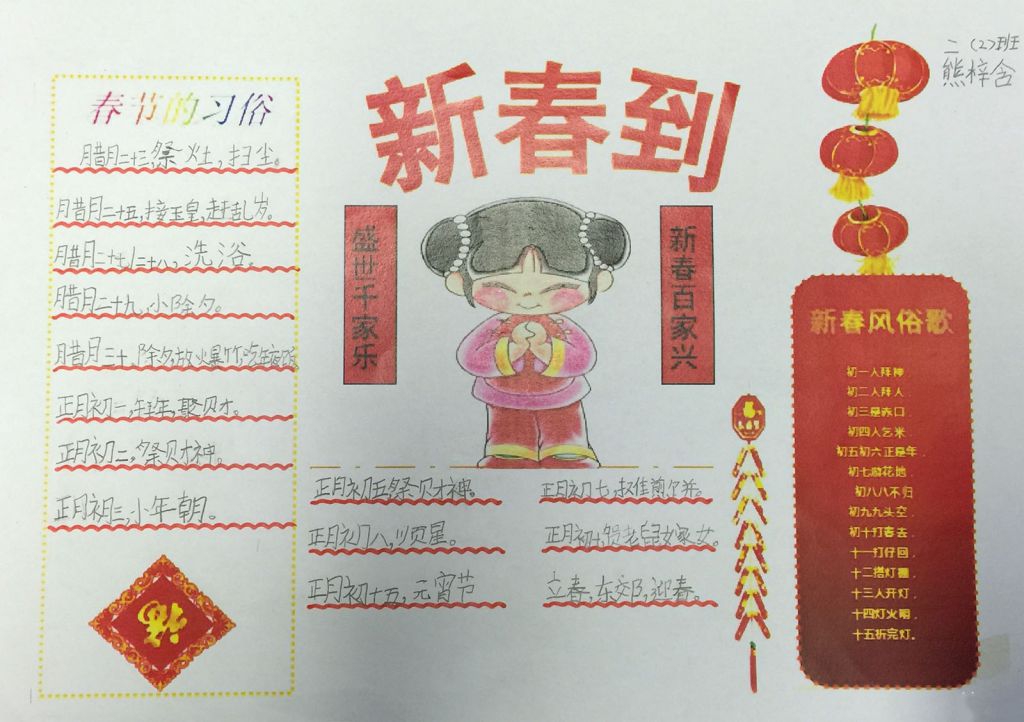 二(2)班
熊梓含
新春到
春节的习俗
腊月二十三,祭灶,扫尘。
腊月二十五,接玉皇,赶乱岁。
腊月二十七/二十八,洗浴。
腊月二十九,小除夕。
腊月三十,除夕,放火爆竹,吃年夜饭
正月初一,年,聚财。
正月初二,祭财神。
正月初三,小年朝。
福
盛世千家乐
新春百家兴
正月初五祭财神。
正月初七,
正月初八,顺星。
正月初十,贺老鼠嫁女。
正月初十五,元宵节
立春,东郊,迎春。
新春风俗歌
初一人拜神.
初二人拜人.
初三是赤口.
初四人乞米.
初五初六正是年.
初七游花地.
初八八不归
初九九头空.
初十打春去.
十一打仔回.
十二搭灯棚.
十三人开灯.
十四灯火明.
十五折完灯。